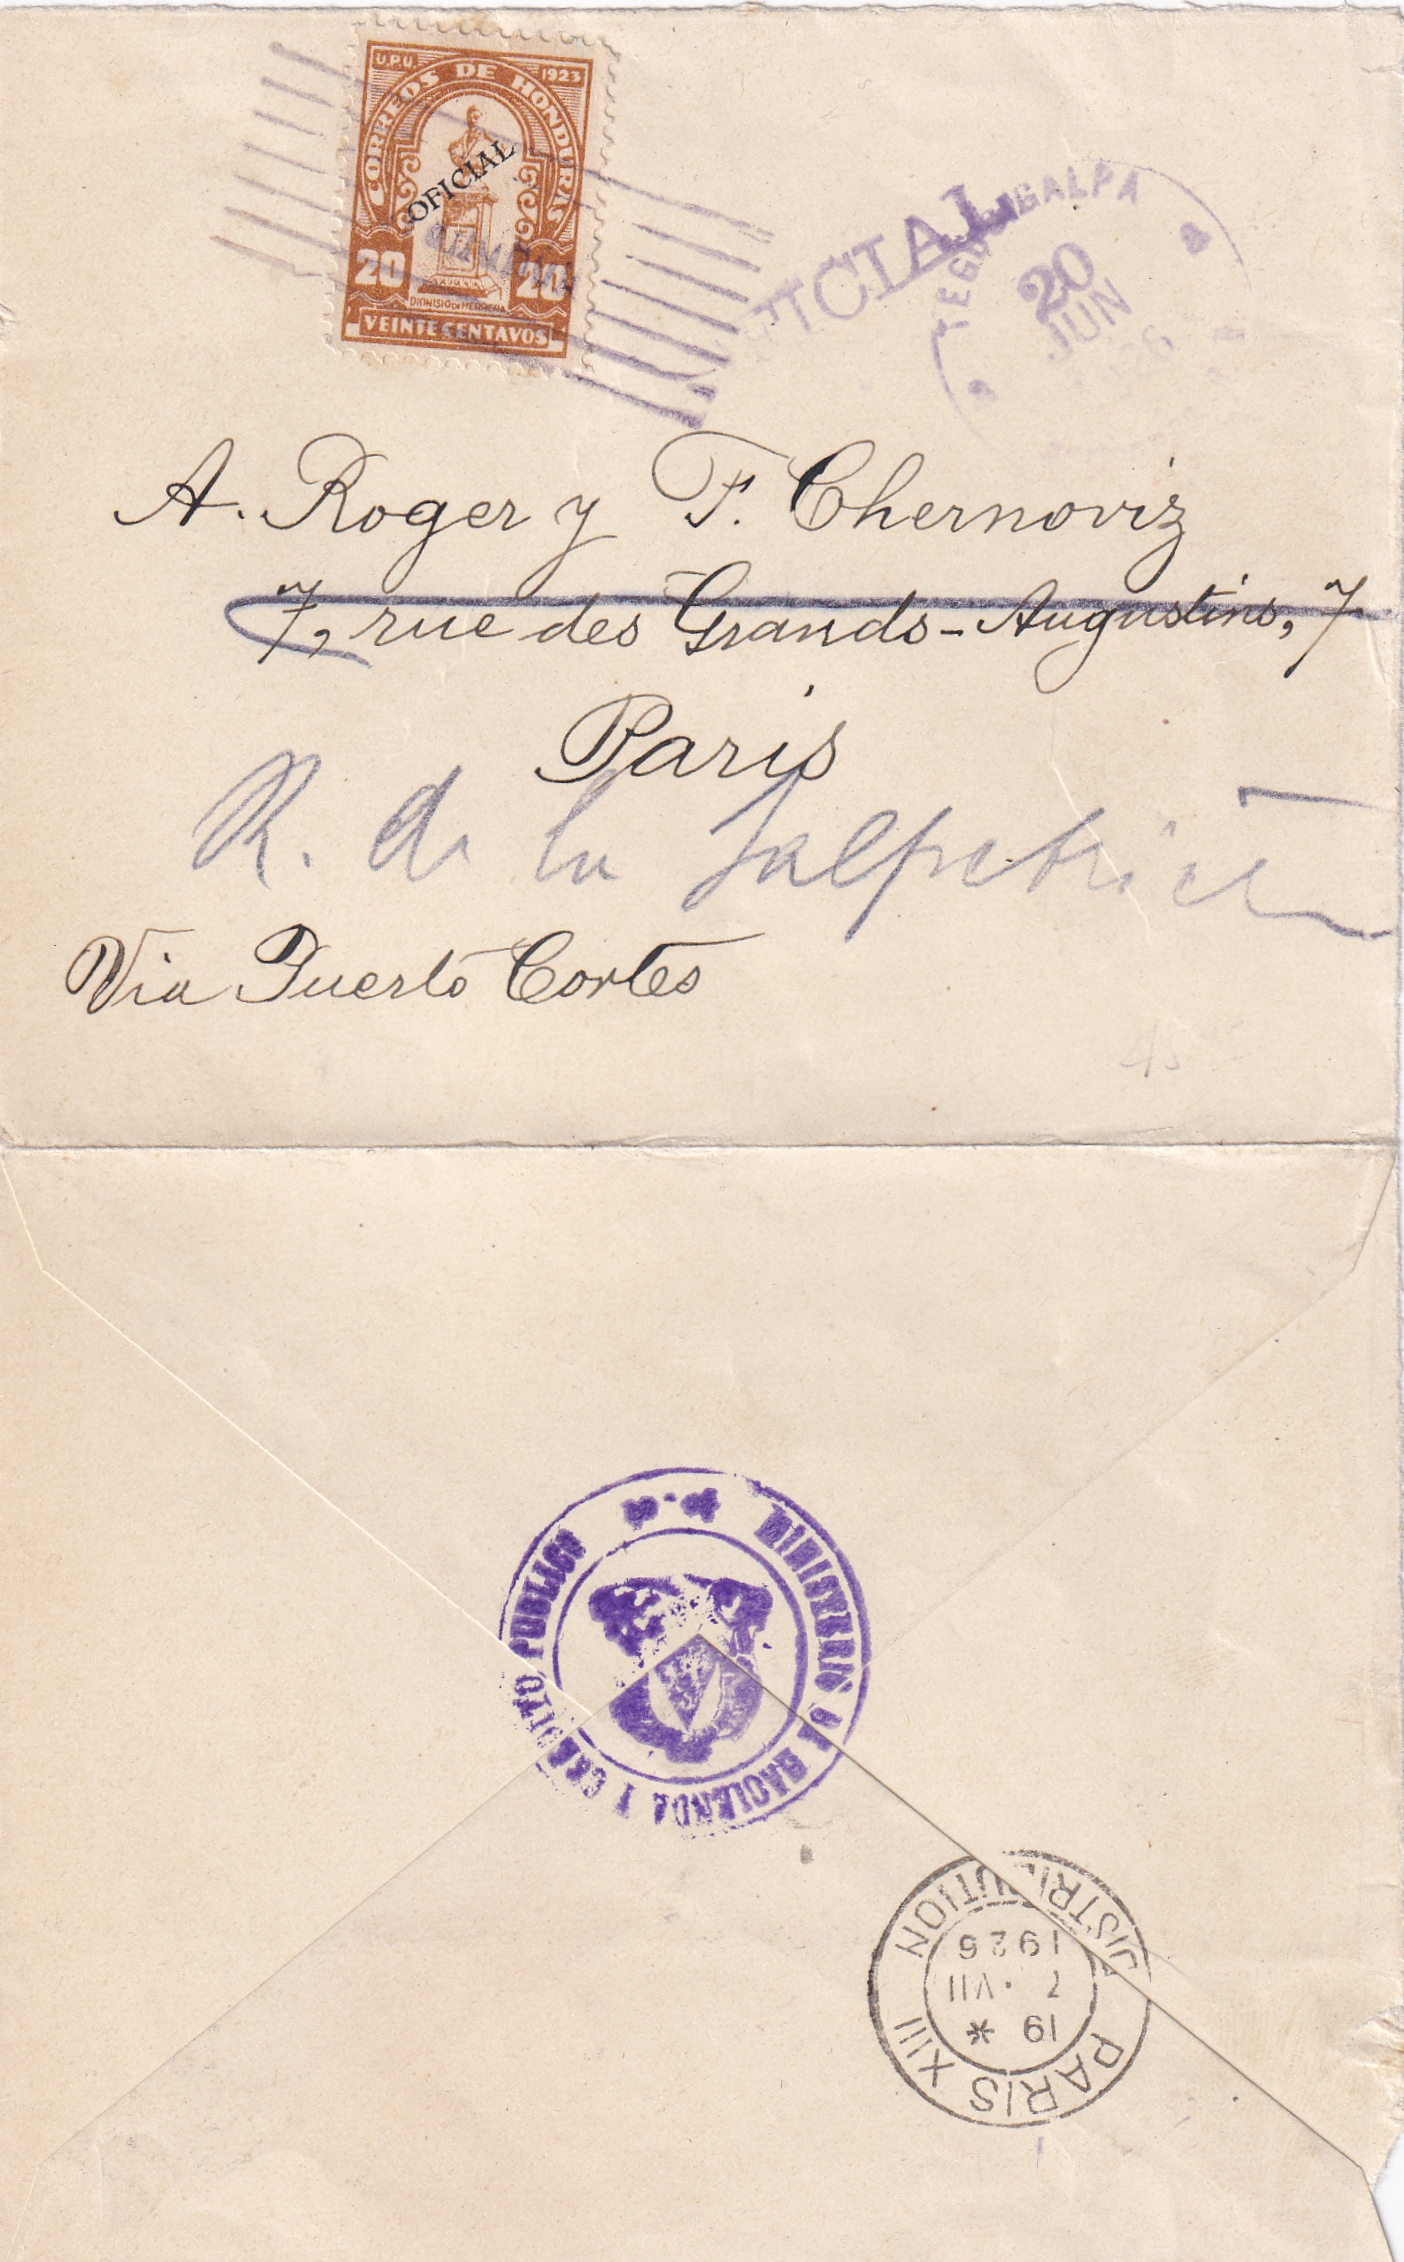 U.P.U. 1923
CORREOS DE HONDURAS
OFICIAL
20 20
DIONISIO DE HERRERA
VEINTE CENTAVOS
OFICIAL
TEGUCIGALPA
20
JUN
1926
A. Roger y F. Chernoviz
7, rue des Grands-Augustins, 7
Paris
R. de la Salpêtrière
Via Puerto Cortes
MINISTERIO DE HACIENDA Y CREDITO PUBLICO
PARIS XIII
19 *
7 · VII
1926
DISTRIBUTION